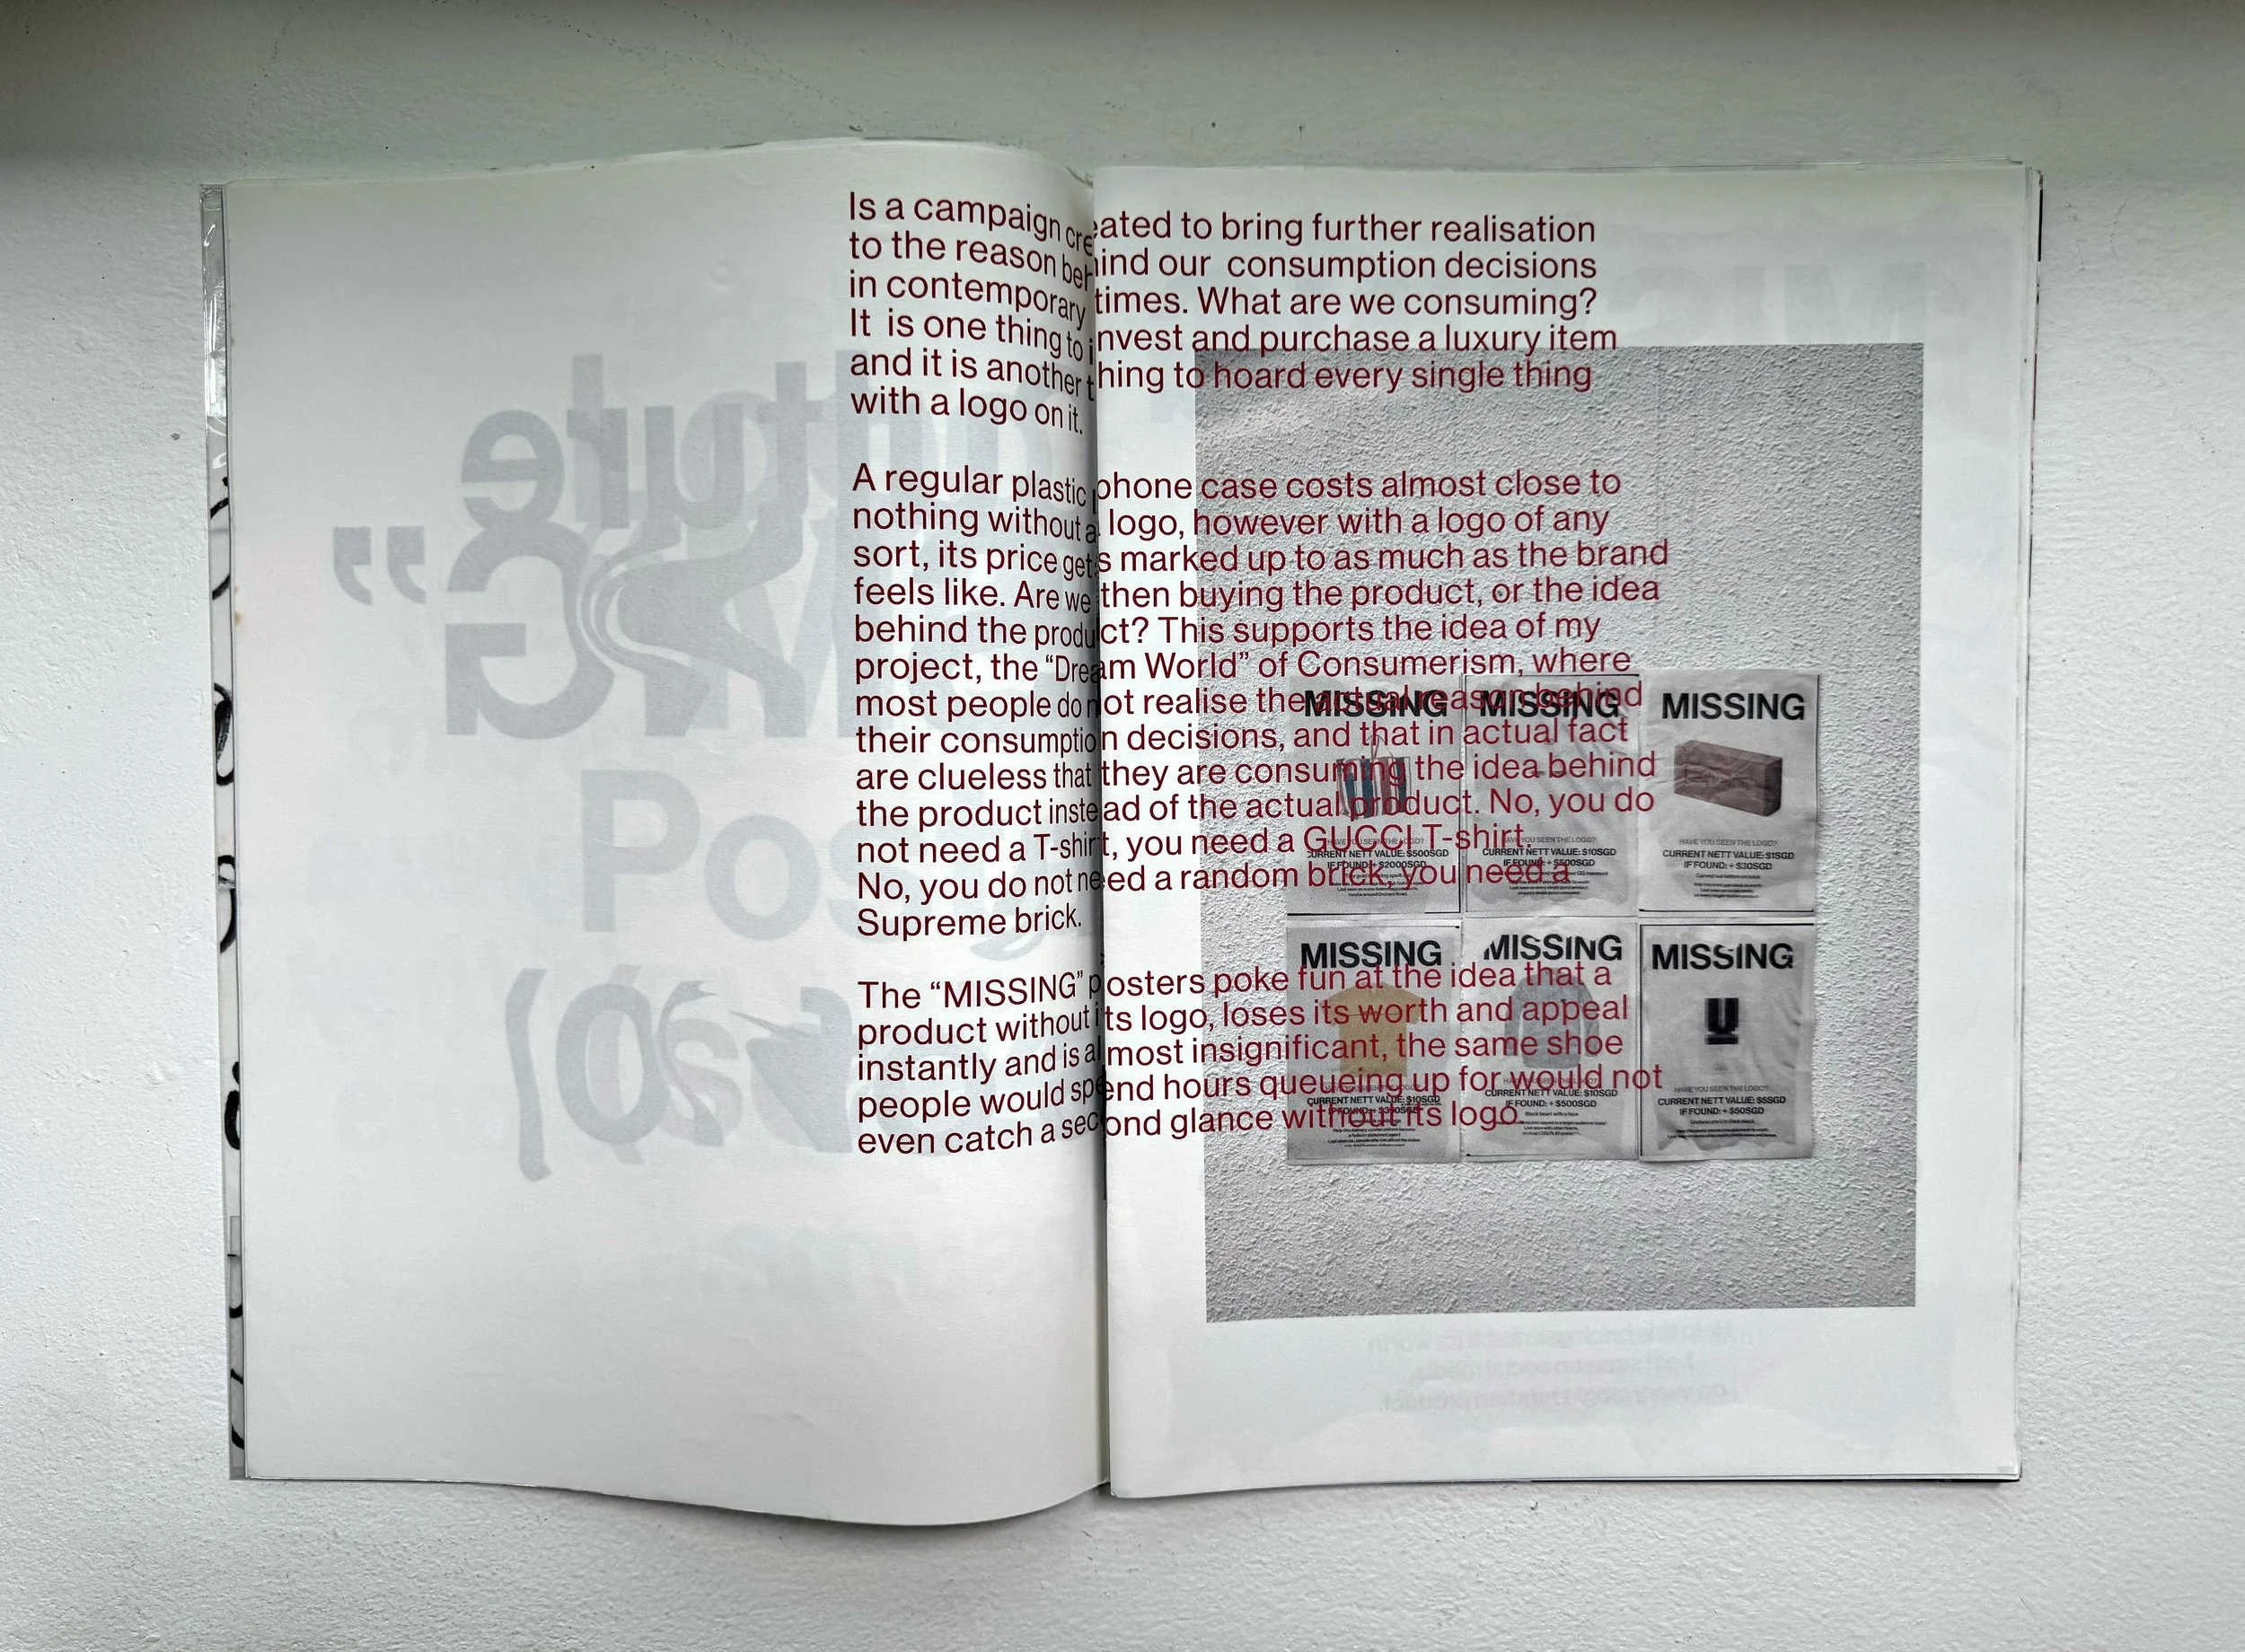 Is a campaign created to bring further realisation
to the reason behind our consumption decisions
in contemporary times. What are we consuming?
It is one thing to invest and purchase a luxury item
and it is another thing to hoard every single thing
with a logo on it.
A regular plastic phone case costs almost close to
nothing without a logo, however with a logo of any
sort, its price gets marked up to as much as the brand
feels like. Are we then buying the product, or the idea
behind the product? This supports the idea of my
project, the “Dream World” of Consumerism, where
most people do not realise the actual reason behind
their consumption decisions, and that in actual fact
are clueless that they are consuming the idea behind
the product instead of the actual product. No, you do
not need a T-shirt, you need a GUCCI T-shirt.
No, you do not need a random brick, you need a
Supreme brick.
The “MISSING” posters poke fun at the idea that a
product without its logo, loses its worth and appeal
instantly and is almost insignificant, the same shoe
people would spend hours queueing up for would not
even catch a second glance without its logo.
MISSING
HAVE YOU SEEN THE LOGO?
CURRENT NETT VALUE: $500SGD
IF FOUND: + $2000SGD
MISSING
HAVE YOU SEEN THE LOGO?
CURRENT NETT VALUE: $10SGD
IF FOUND: + $500SGD
MISSING
HAVE YOU SEEN THE LOGO?
CURRENT NETT VALUE: $1SGD
IF FOUND: + $30SGD
MISSING
CURRENT NETT VALUE: $10SGD
MISSING
HAVE YOU SEEN THE LOGO?
CURRENT NETT VALUE: $10SGD
IF FOUND: + $500SGD
MISSING
U
HAVE YOU SEEN THE LOGO?
CURRENT NETT VALUE: $5SGD
IF FOUND: + $50SGD